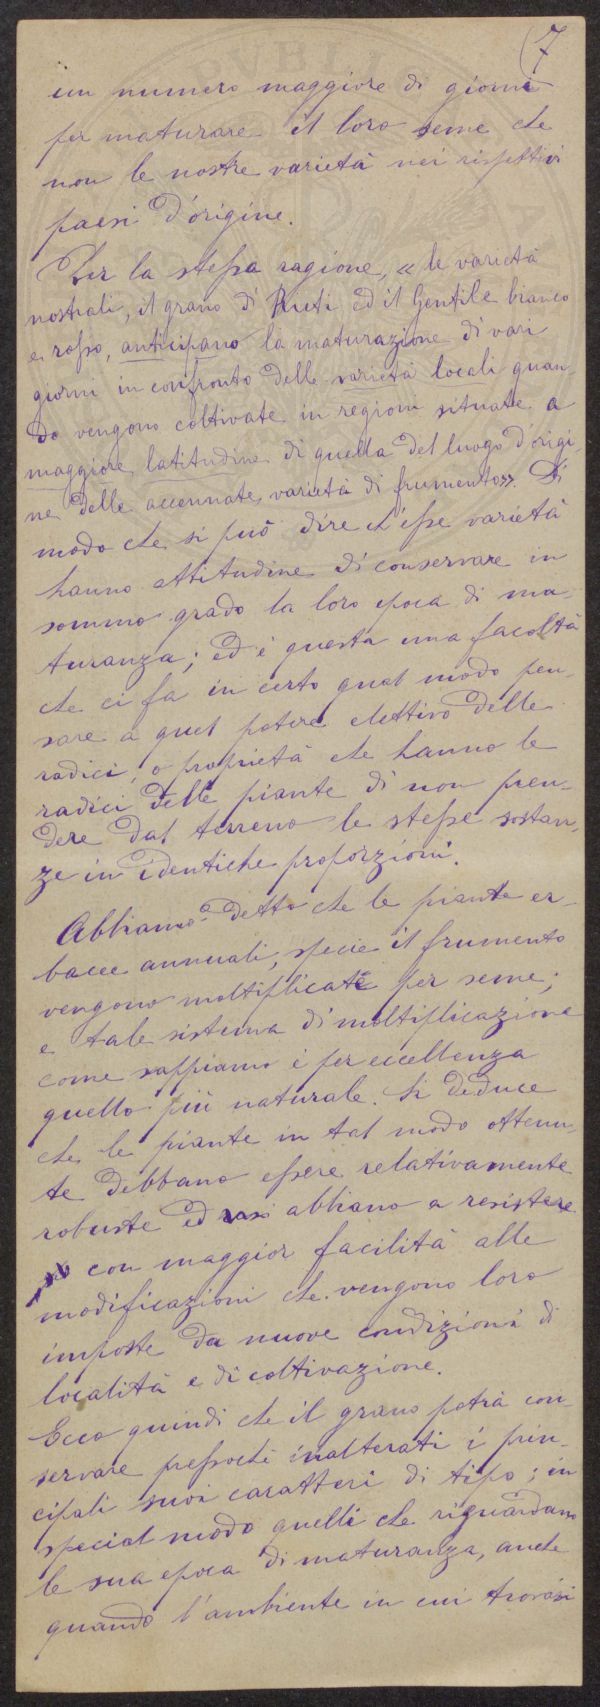 (7
un numero maggiore di giorni
per maturare il loro seme che
non le nostre varietà nei rispettivi
paesi d'origine.
Per la stessa ragione, « le varietà
nostrali, il grano di Rieti ed il Gentile bianco
e rosso, anticipano la maturazione di vari
giorni in confronto delle varietà locali quan-
do vengono coltivate in regioni situate a
maggiore latitudine di quella del luogo d'origi-
ne delle accennate varietà di frumento». Di
modo che si può dire ch'esse varietà
hanno attitudine di conservare in
sommo grado la loro epoca di ma-
turanza; ed è questa una facoltà
che ci fa in certo qual modo pen-
sare a quel potere elettivo delle
radici, o proprietà che hanno le
radici delle piante di non pren-
dere dal terreno le stesse sostan-
ze in identiche proporzioni.
Abbiamo detto che le piante er-
bacee annuali, specie il frumento
vengono moltiplicate per seme;
e tale sistema di moltiplicazione
come sappiamo è per eccellenza
quello più naturale. Si deduce
che le piante in tal modo ottenu-
te debbano essere relativamente
robuste ed abbiano a resistere
con maggior facilità alle
modificazioni che vengono loro
imposte da nuove condizioni di
località e di coltivazione.
Ecco quindi che il grano potrà con-
servare pressochè inalterati i prin-
cipali suoi caratteri di tipo; in
special modo quelli che riguardano
la sua epoca di maturanza, anche
quando l'ambiente in cui trovasi